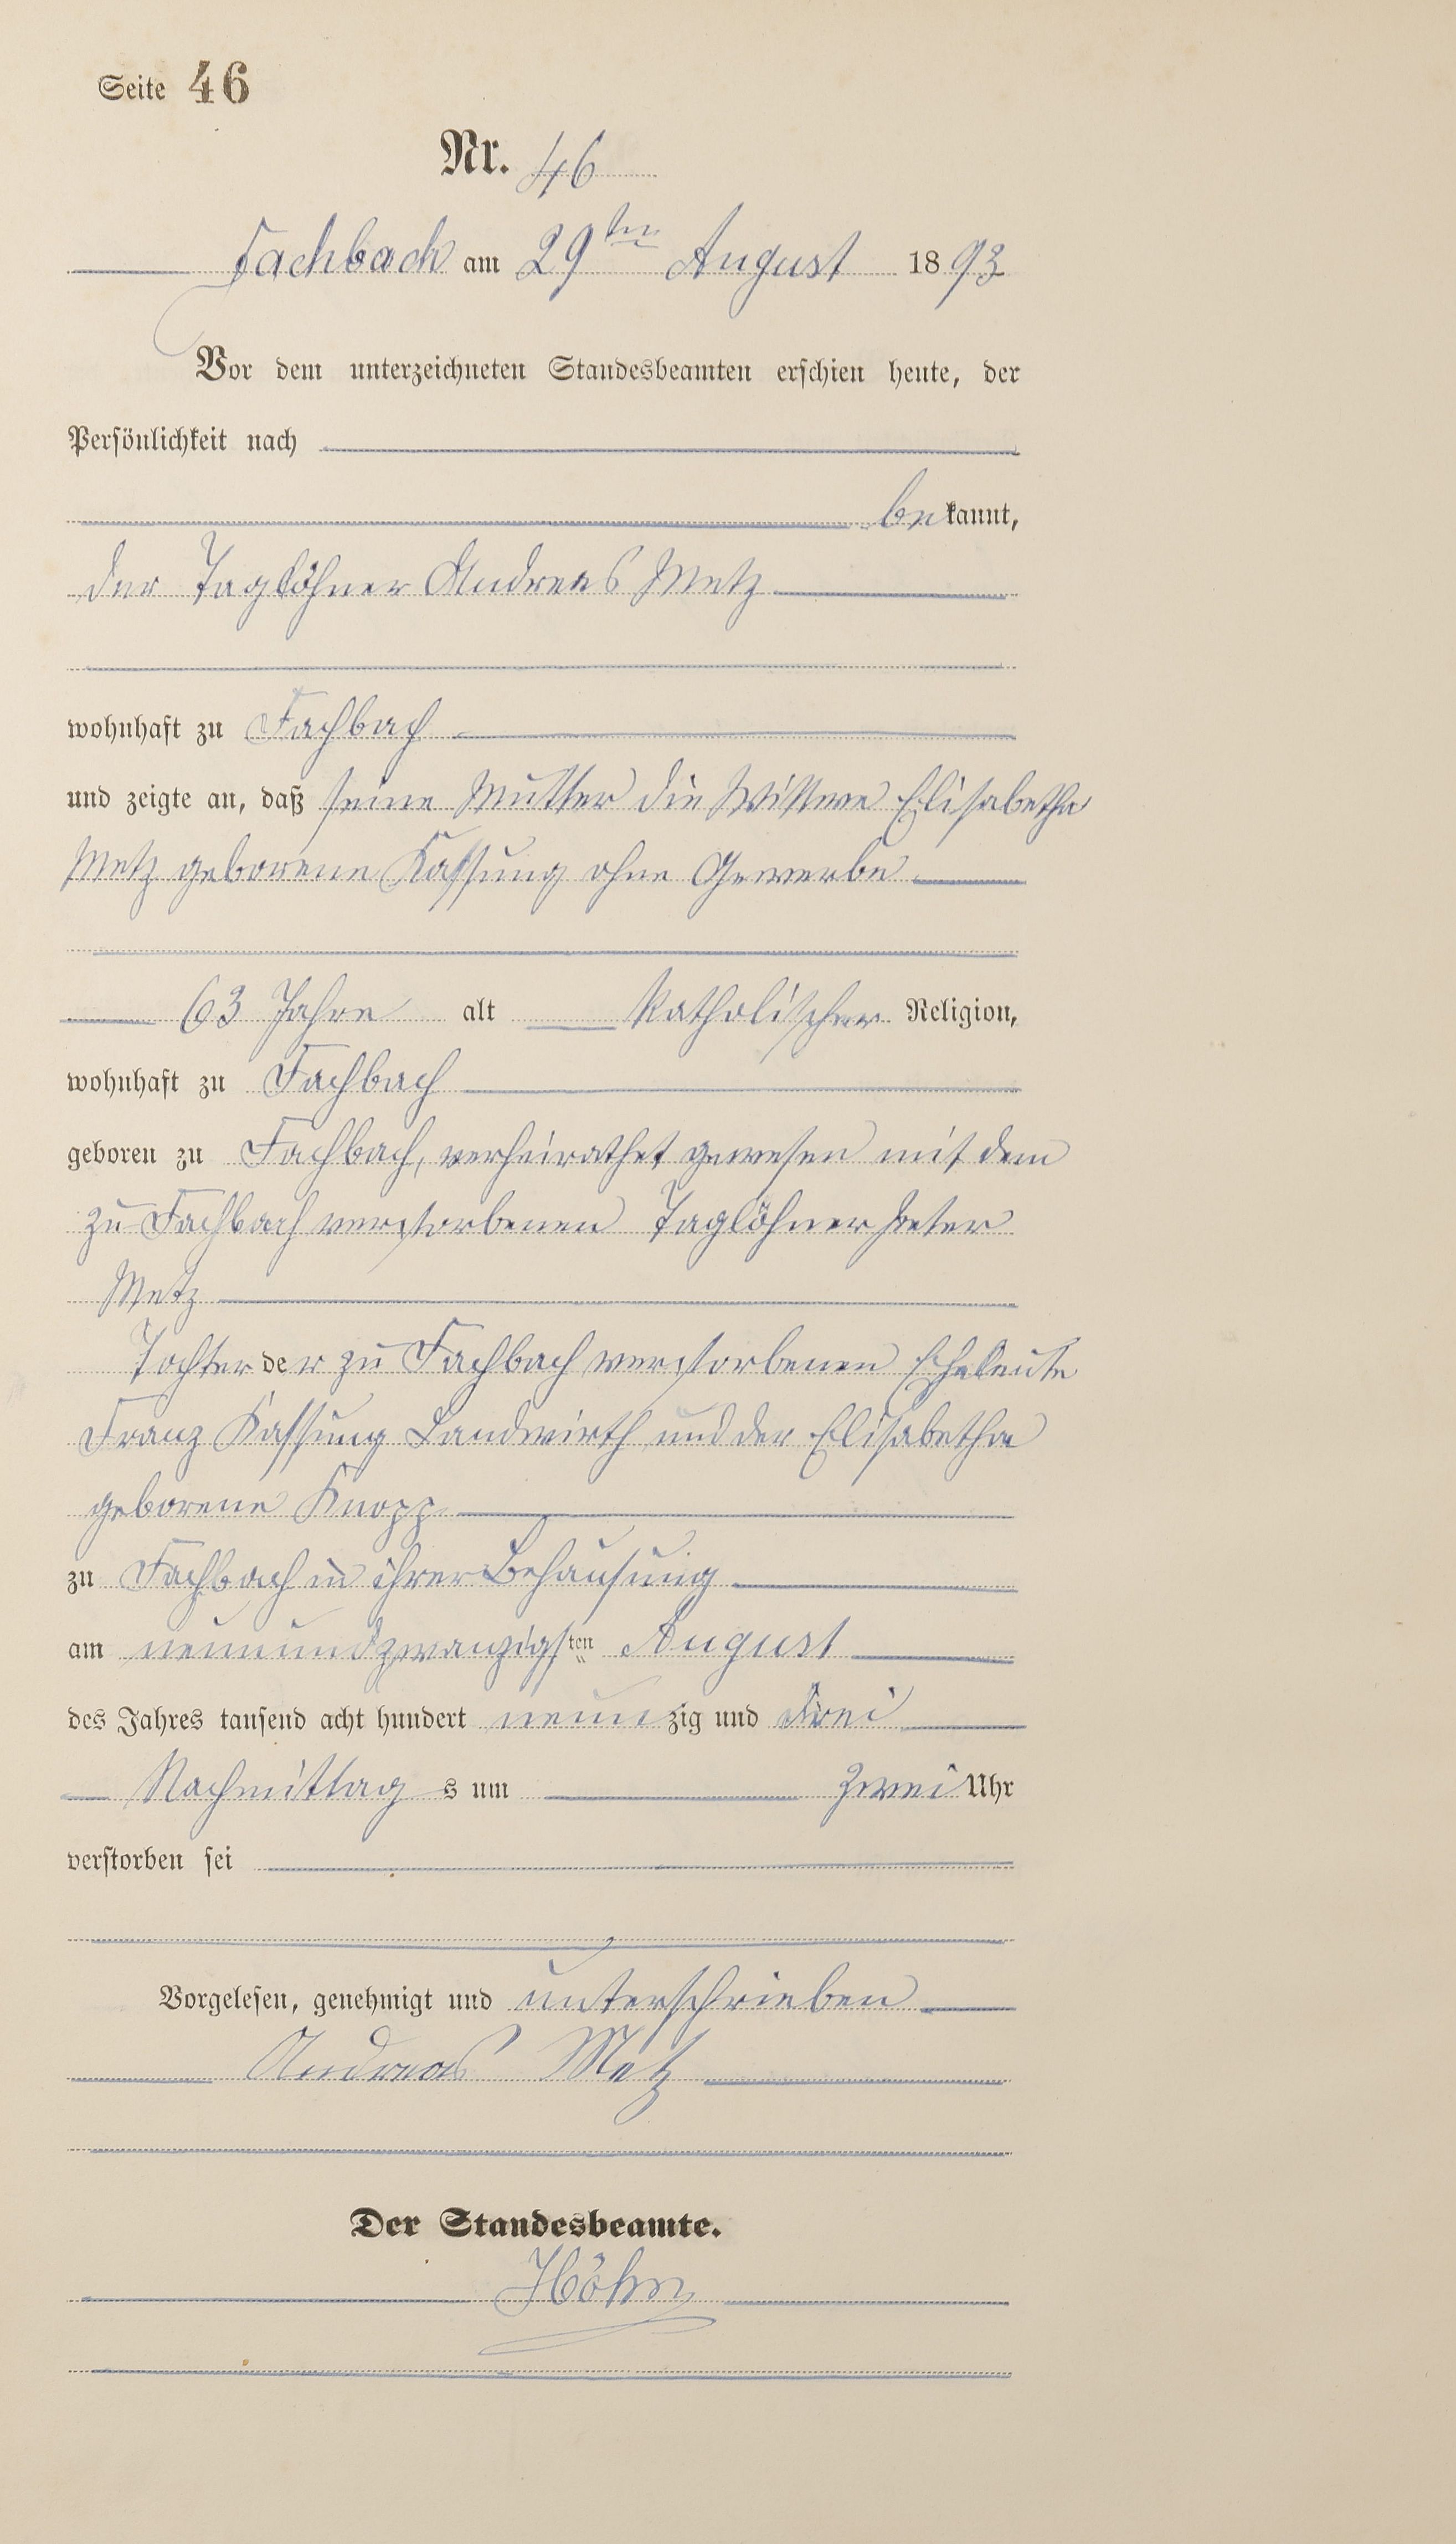 Seite 46
Nr. 46
Fachbach am 29ten August 1893
Vor dem unterzeichneten Standesbeamten erschien heute, der
Persönlichkeit nach
bekannt,
der Taglöhner Andreas Metz
wohnhaft zu Fachbach
und zeigte an, daß seine Mutter die Wittwe Elisabetha
Metz geborene Kassung ohne Gewerbe
63 Jahre alt katholischer Religion,
wohnhaft zu Fachbach
geboren zu Fachbach, verheirathet gewesen mit dem
zu Fachbach verstorbenen Taglöhner Peter
Metz
Tochter der zu Fachbach verstorbenen Eheleute
Franz Kassung Landwirth und der Elisabetha
geborene Knopp
zu Fachbach in ihrer Behausung
am neunundzwanzigsten August
des Jahres tausend acht hundert neunzig und drei
Nachmittags um zwei Uhr
verstorben sei
Vorgelesen, genehmigt und unterschrieben
Andreas Metz
Der Standesbeamte.
Höhn